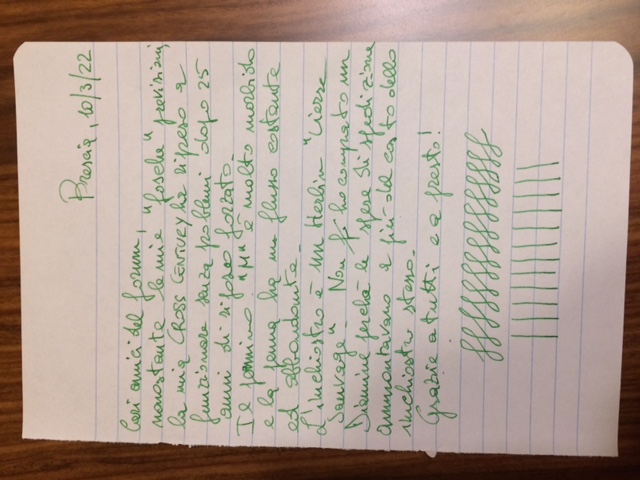 Brescia, 10/3/22
Cari amici del forum,
nonostante le mie "fosche" previsioni,
la mia CROSS CENTURY ha ripreso a
funzionare senza problemi dopo 25
anni di riposo forzato.
Il pennino "M" è molto morbido
e la penna ha un flusso costante
ed abbondante.
L'inchiostro è un Herbin "Lierre
Sauvage". Non ho comprato un
Diamine perchè le spese di spedizione
ammontavano a più del costo dello
inchiostro stesso.
Grazie a tutti e a presto!